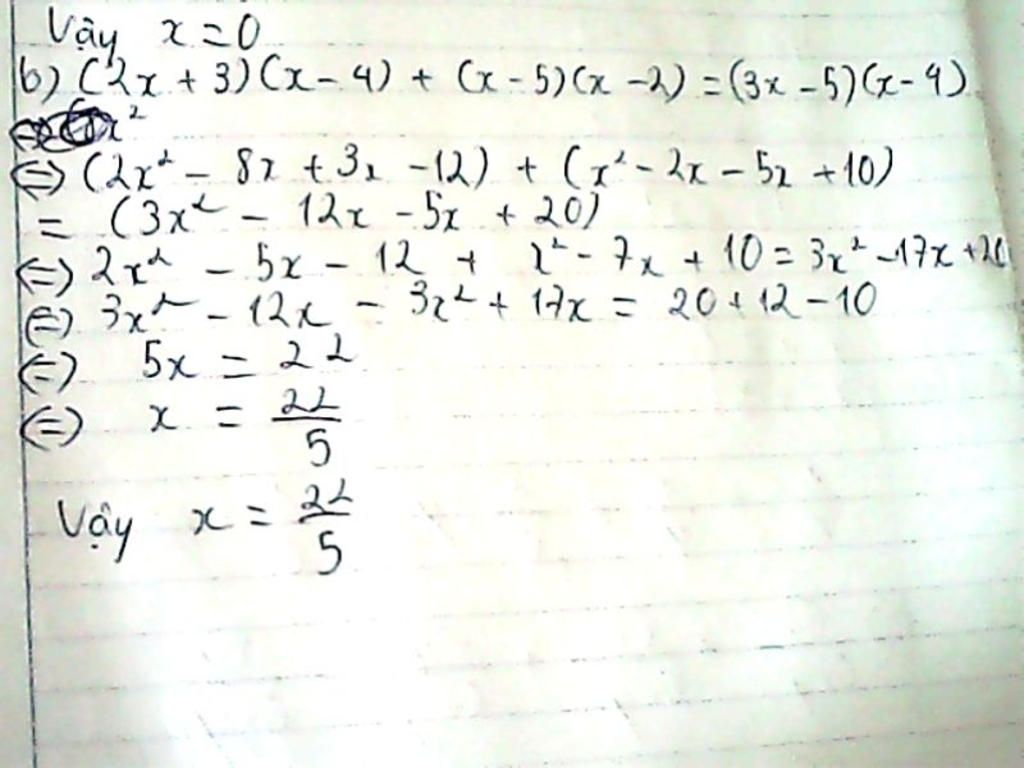 Vậy x = 0
b) (2x + 3)(x - 4) + (x - 5)(x - 2) = (3x - 5)(x - 4)
x²
<=> (2x² - 8x + 3x - 12) + (x² - 2x - 5x + 10)
= (3x² - 12x - 5x + 20)
<=> 2x² - 5x - 12 + x² - 7x + 10 = 3x² - 17x + 20
<=> 3x² - 12x - 3x² + 17x = 20 + 12 - 10
<=> 5x = 22
<=> x = 22/5
Vậy x = 22/5